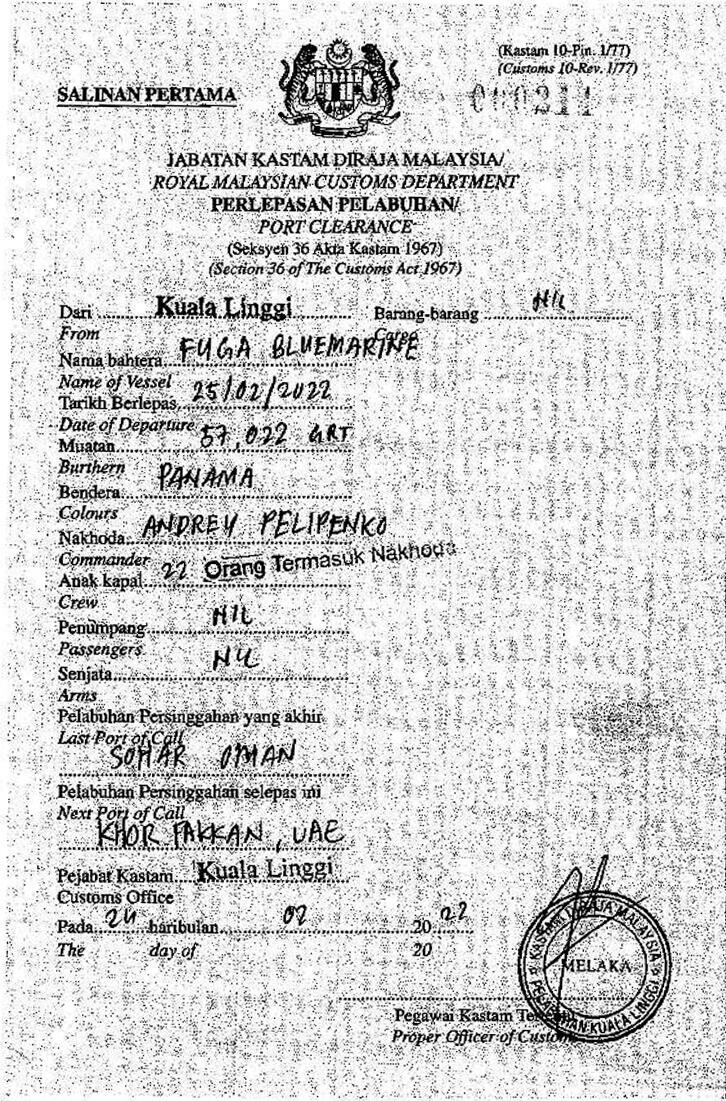 (Kastam 10-Pin. 1/77)
(Customs 10-Rev. 1/77)
SALINAN PERTAMA
000211
JABATAN KASTAM DIRAJA MALAYSIA/
ROYAL MALAYSIAN CUSTOMS DEPARTMENT
PERLEPASAN PELABUHAN/
PORT CLEARANCE
(Seksyen 36 Akta Kastam 1967)
(Section 36 of The Customs Act 1967)
Dari Kuala Linggi Barang-barang NIL
From Cargo
Nama bahtera FUGA BLUEMARINE
Name of Vessel
Tarikh Berlepas 25/02/2022
Date of Departure
Muatan 57,022 GRT
Burthern
Bendera PANAMA
Colours
Nakhoda ANDREY PELIPENKO
Commander
Anak kapal 22 Orang Termasuk Nakhoda
Crew
Penumpang NIL
Passengers
Senjata NIL
Arms
Pelabuhan Persinggahan yang akhir
Last Port of Call
SOHAR OMAN
Pelabuhan Persinggahan selepas ini
Next Port of Call
KHOR FAKKAN, UAE
Pejabat Kastam Kuala Linggi
Customs Office
Pada 24 haribulan 02 2022
The day of 20
KASTAM DIRAJA MALAYSIA
MELAKA
PELABUHAN KUALA LINGGI
Pegawai Kastam
Proper Officer of Customs